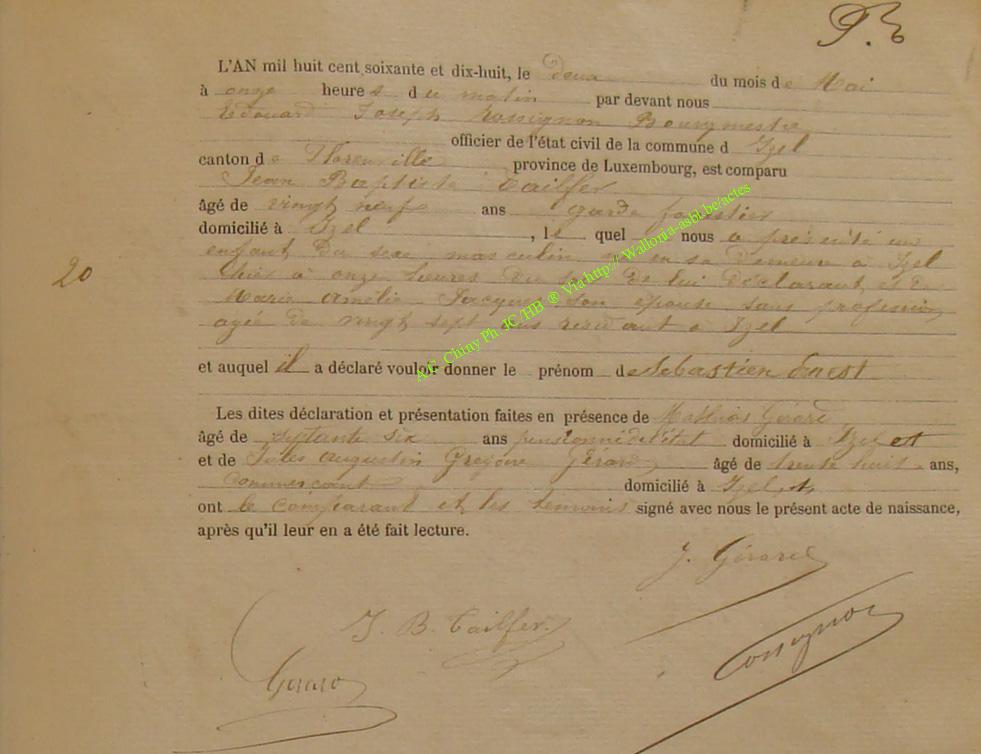 P. E
L'AN mil huit cent soixante et dix-huit, le deux du mois de Mai
à onze heures du matin par devant nous
Edouard Joseph Rossignon Bourgmestre
officier de l'état civil de la commune d Izel
canton de Florenville province de Luxembourg, est comparu
Jean Baptiste Tailfer
âgé de vingt neuf ans garde forestier
domicilié à Izel, le quel nous a présenté un
enfant du sexe masculin né en sa demeure à Izel
hier à onze heures du de lui déclarant, et de
Marie Amélie Jacques son épouse sans profession
agée de vingt sept ans résidant à Izel
20
et auquel il a déclaré vouloir donner le prénom de Sébastien Ernest
Les dites déclaration et présentation faites en présence de Mathias Gérard
âgé de septante six ans pensionné de l'état domicilié à Izel et
et de Jules Augustin Grégoire Gérard âgé de trente huit ans,
commerçant domicilié à Izel, et
ont le comparant et les témoins signé avec nous le présent acte de naissance,
après qu'il leur en a été fait lecture.
J. Gérard
J. B. Tailfer
Rossignon
Gérard
A.F. Chiny Ph JC/HB ® Via http// Wallonia-asbl.be/actes